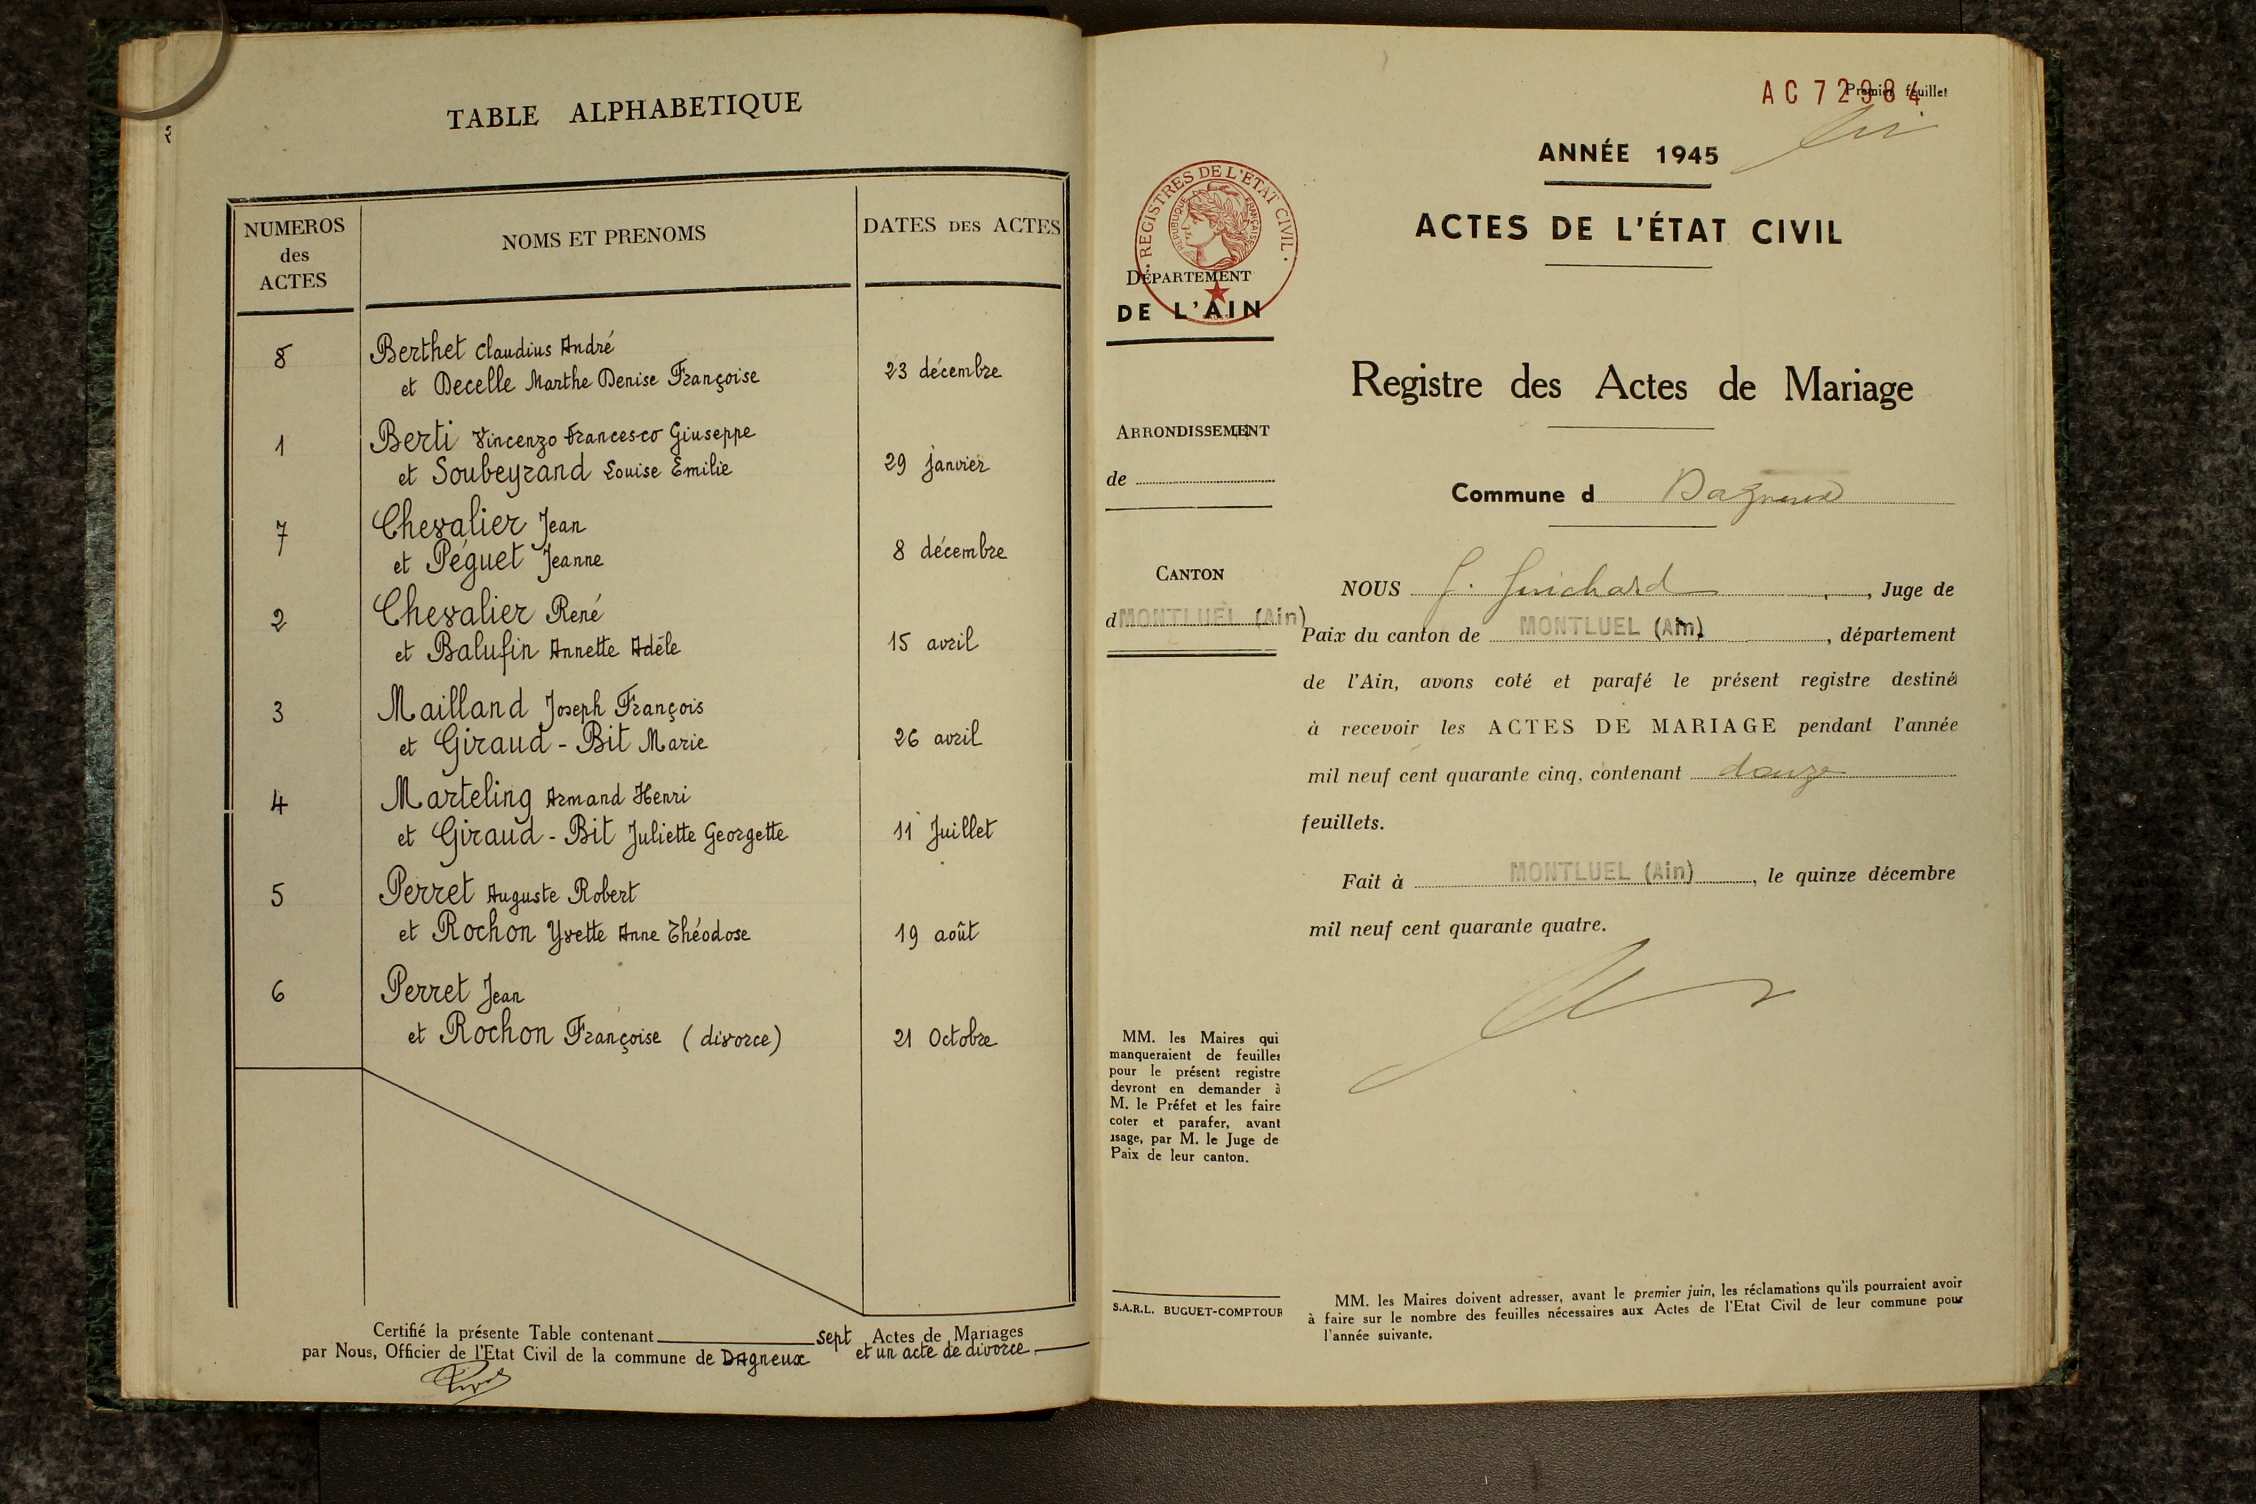 TABLE ALPHABETIQUE
NUMEROS
des
ACTES
NOMS ET PRENOMS
DATES DES ACTES
8
Berthet Claudius André
et Decelle Marthe Denise Françoise
23 décembre
1
Berti Vincenzo Francesco Giuseppe
et Soubeyrand Louise Emilie
29 janvier
7
Chevalier Jean
et Péguet Jeanne
8 décembre
2
Chevalier René
et Balufin Annette Adèle
15 avril
3
Mailland Joseph François
et Giraud-Bit Marie
26 avril
4
Marteling Armand Henri
et Giraud-Bit Juliette Georgette
11 Juillet
5
Perret Auguste Robert
et Rochon Yvette Anne Théodose
19 août
6
Perret Jean
et Rochon Françoise (divorce)
21 Octobre
Certifié la présente Table contenant sept Actes de Mariages
par Nous, Officier de l'Etat Civil de la commune de Dagneux et un acte de divorce
AC 72984
Premier feuillet
ANNÉE 1945
ACTES DE L'ÉTAT CIVIL
REGISTRES DE L'ETAT CIVIL
REPUBLIQUE FRANÇAISE
DÉPARTEMENT
DE L'AIN
Registre des Actes de Mariage
ARRONDISSEMENT
de
Commune d Dagneux
CANTON
d MONTLUEL (Ain)
NOUS J. Guichard, Juge de
Paix du canton de MONTLUEL (Ain), département
de l'Ain, avons coté et parafé le présent registre destiné
à recevoir les ACTES DE MARIAGE pendant l'année
mil neuf cent quarante cinq, contenant douze
feuillets.
Fait à MONTLUEL (Ain), le quinze décembre
mil neuf cent quarante quatre.
MM. les Maires qui
manqueraient de feuilles
pour le présent registre
devront en demander à
M. le Préfet et les faire
coter et parafer, avant
usage, par M. le Juge de
Paix de leur canton.
S.A.R.L. BUGUET-COMPTOUR
MM. les Maires doivent adresser, avant le premier juin, les réclamations qu'ils pourraient avoir
à faire sur le nombre des feuilles nécessaires aux Actes de l'Etat Civil de leur commune pour
l'année suivante.